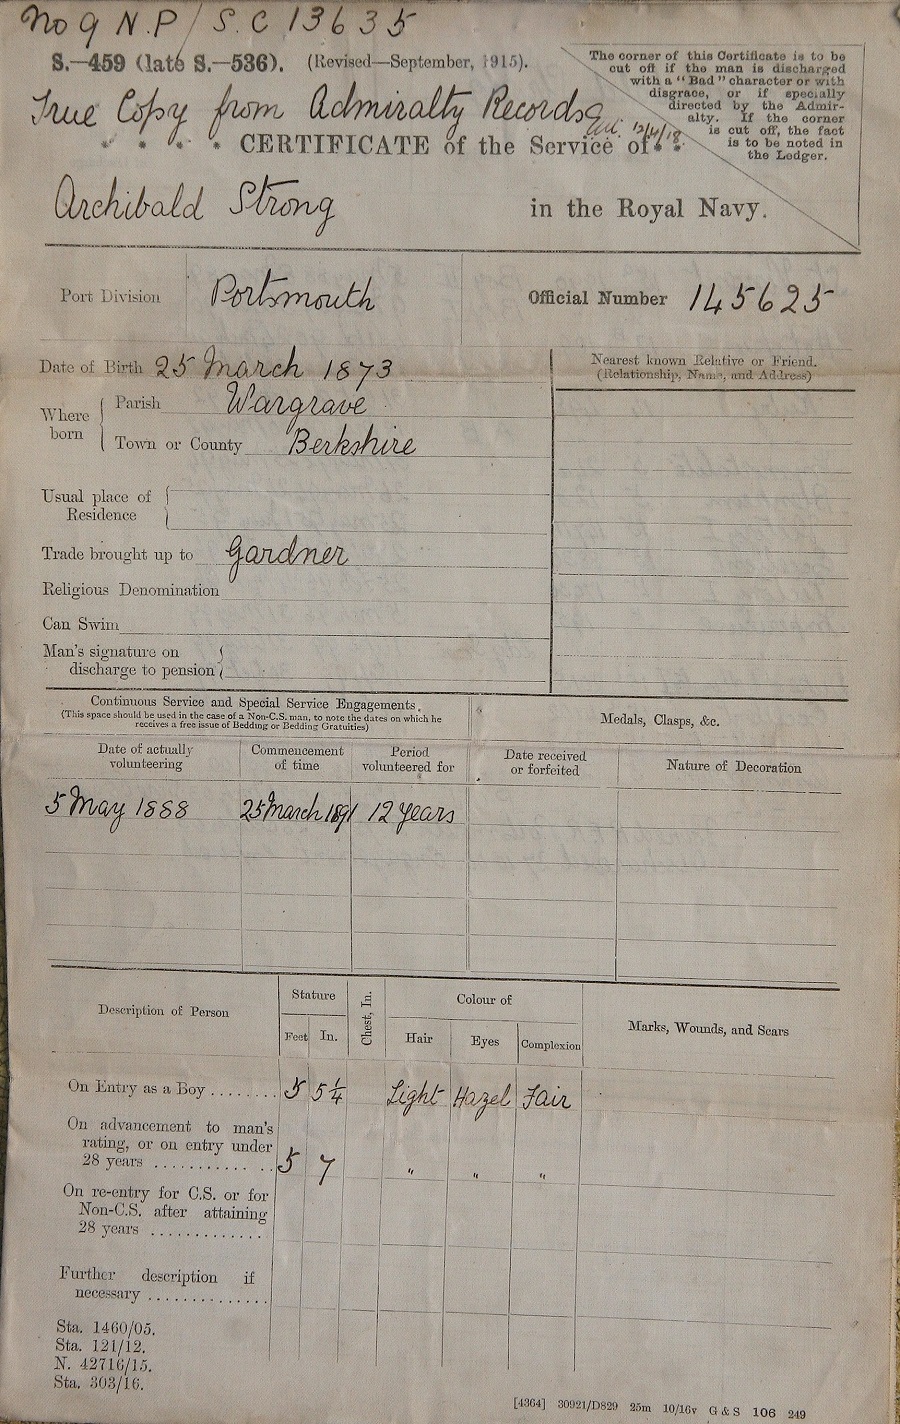 No 9 N.P/ S.C 13635
S.—459 (late S.—536). (Revised—September, 1915).
The corner of this Certificate is to be
cut off if the man is discharged
with a "Bad" character or with
disgrace, or if specially
directed by the Admir-
alty. If the corner
is cut off, the fact
is to be noted in
the Ledger.
True Copy from Admiralty Records
12/4/18
CERTIFICATE of the Service of
Archibald Strong in the Royal Navy.
Port Division Portsmouth Official Number 145625
Date of Birth 25 March 1873
Nearest known Relative or Friend.
(Relationship, Name, and Address)
Where born { Parish Wargrave
Town or County Berkshire
Usual place of
Residence
Trade brought up to Gardner
Religious Denomination
Can Swim
Man's signature on
discharge to pension
Continuous Service and Special Service Engagements.
(This space should be used in the case of a Non-C.S. man, to note the dates on which he
receives a free issue of Bedding or Bedding Gratuities)
Medals, Clasps, &c.
Date of actually volunteering
Commencement of time
Period volunteered for
Date received or forfeited
Nature of Decoration
5 May 1888 25 March 1891 12 Years
Description of Person
Stature
Feet In.
Chest, In.
Colour of
Hair Eyes Complexion
Marks, Wounds, and Scars
On Entry as a Boy ........ 5 5¼ Light Hazel Fair
On advancement to man's
rating, or on entry under
28 years ............. 5 7 " " "
On re-entry for C.S. or for
Non-C.S. after attaining
28 years .............
Further description if
necessary ..............
Sta. 1460/05.
Sta. 121/12.
N. 42716/15.
Sta. 303/16.
[4364] 30921/D829 25m 10/16v G & S 106 249